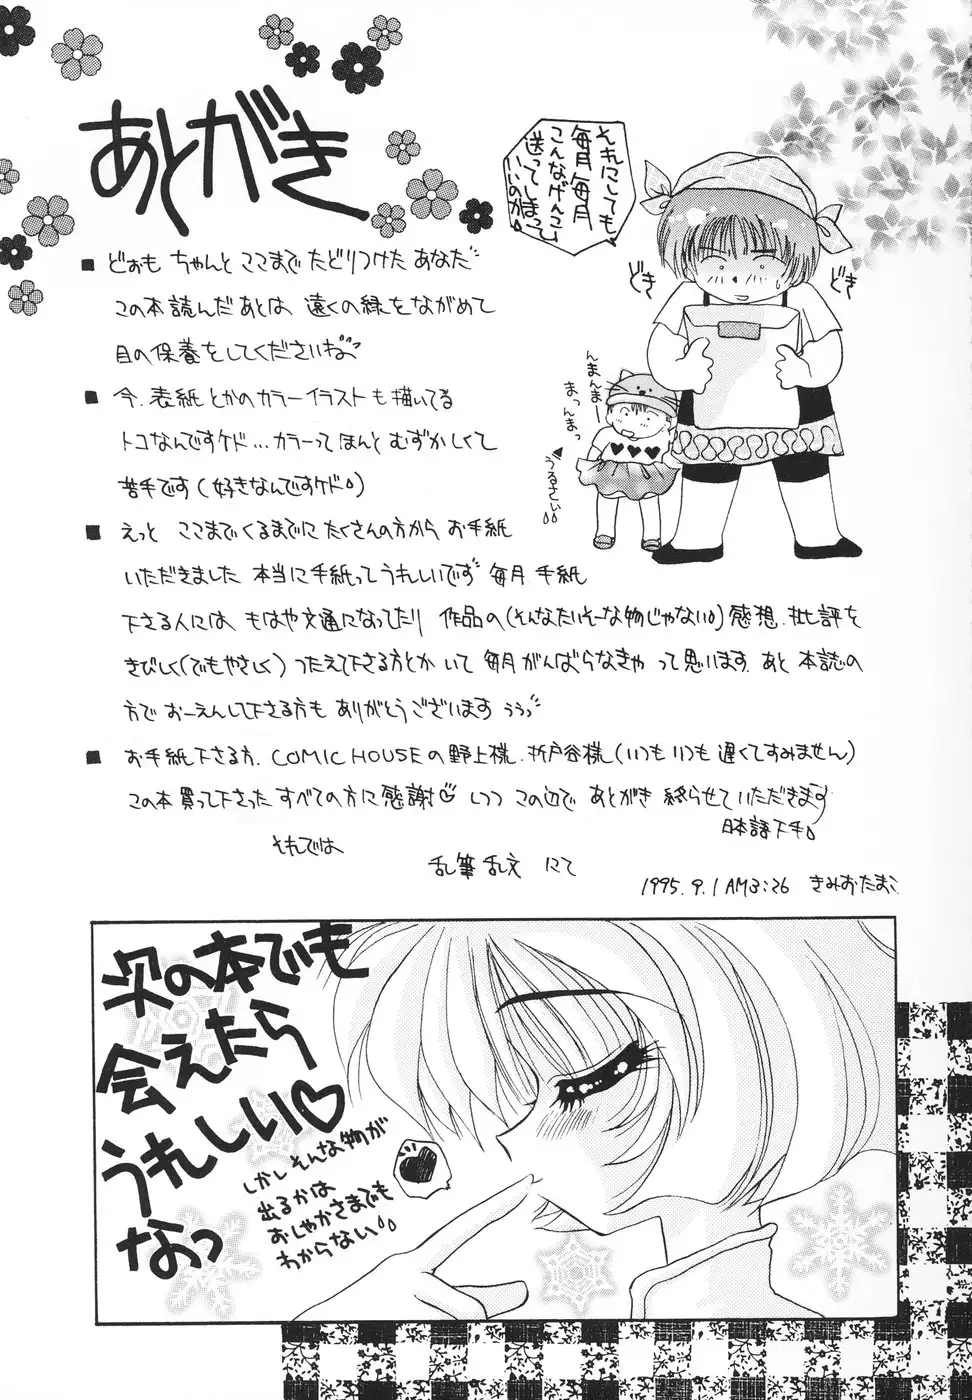 あとがき
それにしても
毎月毎月
こんなげんこ
送ってしまって
いいのか
どき
どき
んまんまー
まっんまっ
うるさい
■ どぉも ちゃんと ここまで たどりつけた あなた
この本読んだあとは 遠くの緑をながめて
目の保養をしてくださいね
■ 今、表紙とかのカラーイラストも描いてる
トコなんですケド…カラーって ほんと むずかしくて
苦手です(好きなんですケド)
■ えっと ここまでくるまでに たくさんの方から お手紙
いただきました 本当に手紙って うれしいです 毎月 手紙
下さる人には、もはや文通になってたり 作品の(そんなたいそーな物じゃない)感想、批評を
きびしく(でもやさしく)つたえて下さる方とか いて 毎月がんばらなきゃ って思います あと 本誌の
方で おーえんして下さる方も ありがとうございます うぅっ
■ お手紙下さる方、COMIC HOUSEの野上様、折戸谷様(いつもいつも遅くてすみません)
この本買って下さった すべての方に感謝♡しつつ この辺で あとがき 終らせていただきます
日本語下手
それでは
乱筆乱文 にて
1995.9.1 AM3:26 きみおたまこ
次の本でも
会えたら
うれしい♡
なっ
しかしそんな物が
出るかは
おしゃかさまでも
わからない